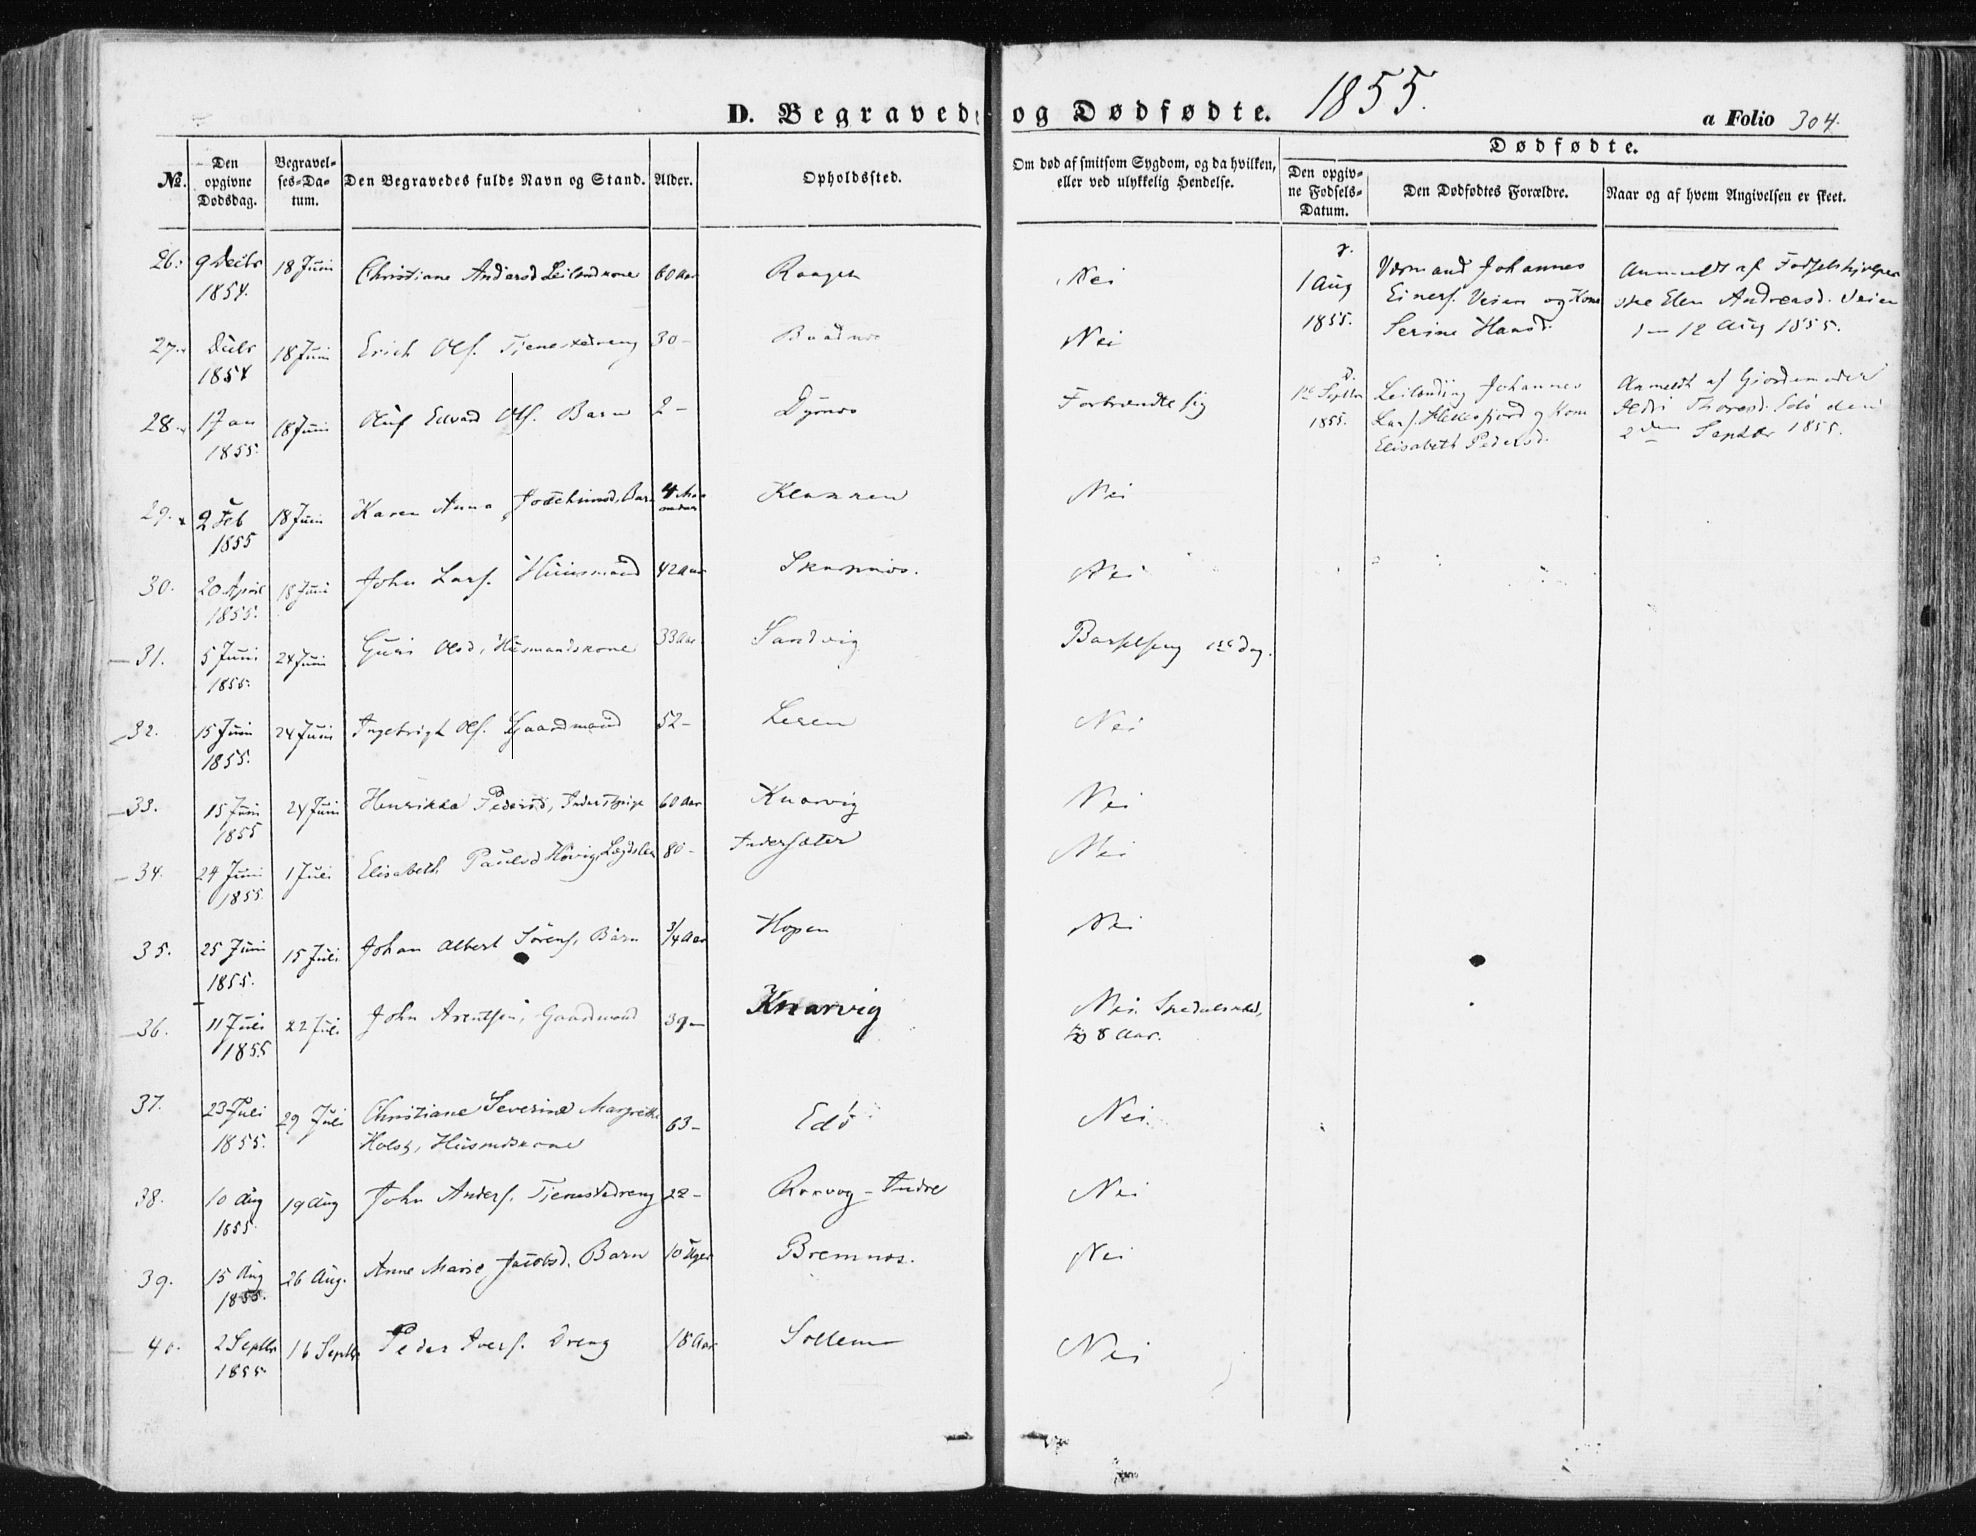 D. Begravede og Dødfødte. 1855.
a Folio 304.
No.
Den opgivne Dødsdag.
Begravelses-Datum.
Den Begravedes fulde Navn og Stand.
Alder.
Opholdssted.
Om død af smitsom Sygdom, og da hvilken, eller ved ulykkelig Hendelse.
Dødfødte.
Den opgivne Fødsels-Datum.
Den Dødfødtes Forældre.
Naar og af hvem Angivelsen er skeet.
26. 9 Decbr 1854. 18 Juni Christiane Andersd Leilendkone 60 Aar Nei
27. Decbr 1854 18 Juni Erich Ols. Tjenestedreng 30 - Nei
28. 1 Jan 1855. 18 Juni Oluf Edvard Ols. Barn 2 - Dyrnes Forbrændte sig
29. 2 Feb 1855 18 Juni Karen Anna Jochimsd, Barn 4 Maaneder Klakken Nei
30. 20 April 1855. 18 Juni John Lars. Huusmand 42 Aar Skarpnes. Nei
31. 5 Juni 1855. 24 Juni Guri Olsd, Husmandskone 33 Aar Sandvig Barselseng 12te Dag.
32. 15 Juni 1855. 24 Juni Ingebrigt Ols. Gaardmand 52 - Leren Nei
33. 15 Juni 1855 24 Juni Henrikka Pedersd, Inderstpige 60 Aar Knarvig Nei
34. 24 Juni 1855. 1 Juli Elisabeth Paulsd Hövig, Lægdslem 80 - Indersæter Nei
35. 25 Juni 1855. 15 Juli Johan Albert Sörens. Barn 3/4 Aar Hopen Nei
36. 11 Juli 1855 22 Juli John Arentsen, Gaardmand 39 - Knarvig Nei. Spedalskhed, 8 Aar.
37. 23 Juli 1855. 29 Juli Christiane Severine Margrethe Holst, Husmdskone 63 - Edö Nei
38. 10 Aug 1855. 19 Aug John Anders. Tjenestedreng 22 - Indre Nei
39. 15 Aug 1855. 26 Aug. Anne Marie Jacobsd. Barn 10 Uger Bremnes. Nei
40. 2 Septbr 1855 16 Septbr Peder Ivers. Dreng 18 Aar Sollem Nei
1 Aug 1855. Johannes Einers. Veien og Kone Serine Hansd. Anmeldt af Fødselshjelperske Elen Andreasd. Veien 12 Aug 1855.
Septbr 1855. Leilending Johannes Lars. og Kone Elisabeth Pedersd. Anmeldt af Gjordemoder Thoresd. Edö den 2den Septbr 1855.